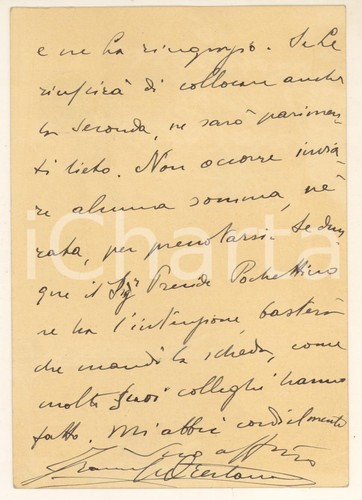 e ne ha ringrazio. Se Le
riuscirà di collocare anche
la seconda, ne sarò parimen-
ti lieto. Non occorre invia-
re alcuna somma, nè
rata, per prenotarsi. Se dun-
que il Sig Preside Pochettino
ne ha l'intenzione basterà
che mandi la scheda, come
molti Suoi colleghi hanno
fatto. Mi abbia cordialmente
Suo aff/mo
iCharta